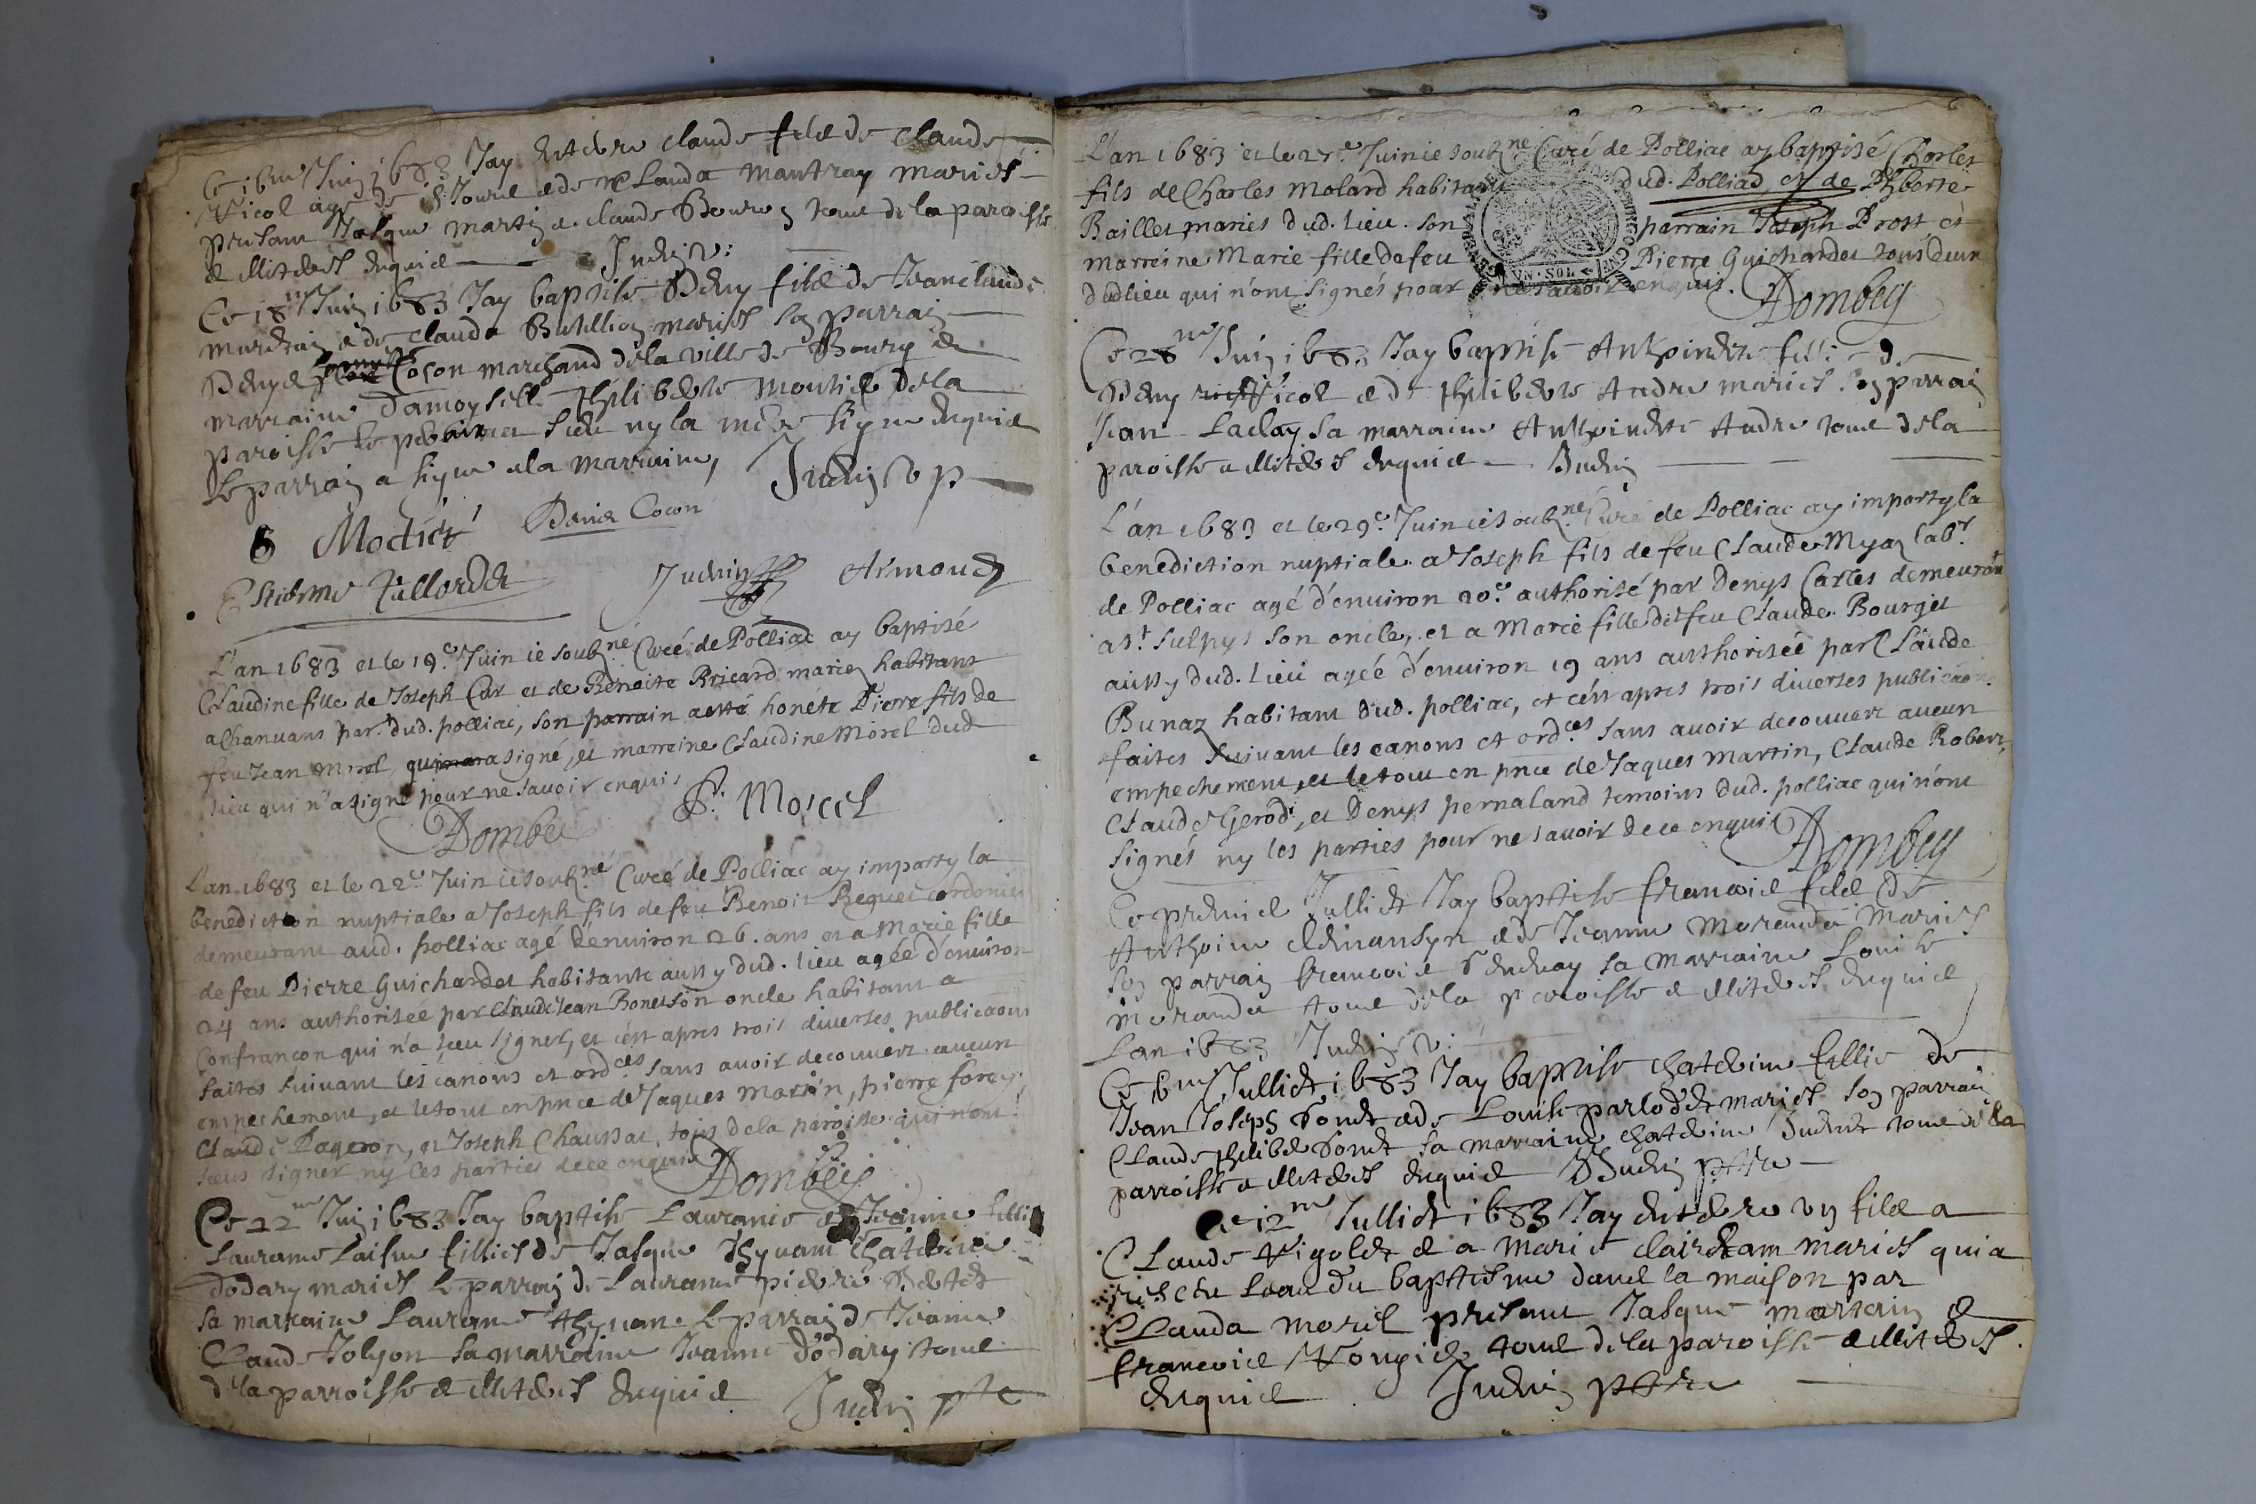 Ce 16me Juin 1683 Jay enterre claude filz de claude
Nicol age de 8 Jours et de Clauda Mantray mariés
present Jasque martin e. claude Bourg tous de la paroisse
et illiteres enquis Judin v:
Ce 18me Juin 1683 Jay baptise Deny filz de Jean claude
et de Clauda mariés son parrain
Denys Coçon marchand de la ville de Bourg et
marraine Damoyselle philiberte de la
paroisse le pere sceu ny la mere signe enquis
Le parrain a signe et la marraine, Judin v p
Denis Cocon
Judrin
L'an 1683 et le 19e Juin ie soubz.né Curé de Polliac ay baptisé
Claudine fille de Joseph et de Benoite Bricard mariez habitans
a Chanuans par. dud. polliac, son parrain a esté honéte Pierre fils de
feu Jean Morel, qui a signé, et marreine Claudine Morel dud
lieu qui n'a signé pour ne savoir enquis P. Morel
Dombey
L'an 1683 et le 22e Juin ie soubz.né Curé de Polliac ay imparty la
benediction nuptiale a Joseph fils de feu Benoit Reques cordonier
demeurant aud. polliac agé d'enuiron 26. ans et a Marie fille
de feu Pierre Guichardet habitante aussy dud. lieu agée d'enuiron
24 ans authorisée par Claude Jean Bonet son oncle habitant a
Confrançon qui n'a sceu signer, et c'est apres trois diuerses publicaons
faites suiuant les canons et ord.ces sans auoir decouuert aucun
empechement, et le tout en pnce de Jaques Martin, pierre forey,
Claude Pageron, et Joseph Chaussat, tous de la paroisse qui n'ont
sceus signer ny les parties de ce enquis Dombey
Ce 22me Juin 1683 Jay baptise Laurance et Jeanne
fillies de Jasque Thyuant
dodary mariés le parrain de Laurance piere
sa marraine Laurance thyuant le parrain de Jeanne
Claude Jolyon sa marraine Jeanne dodary tous
de la parroisse et illiteres enquis Judin ptre
L'an 1683 et le 27e Juin ie soubz.né Curé de Polliac ay baptisé Charles
fils de Charles Molard habitant dud. Polliad, et de Phberte
Baillet mariés dud. lieu. son parrain Joseph Prost, et
marreine Marie fille de feu Pierre Guichardet tous deux
dudlieu qui n'ont signés pour ne sauoir enquis. Dombey
Ce 28me Juin 1683 Jay baptise Anthoinette fillie de
Deny Nicol et de philiberte Andre mariés son parrain
Jean Laclay sa marraine Anthoinette Andre tous de la
paroisse et illiteres enquis Judin
L'an 1683 et le 29e Juin ie soubz.né Curé de Polliac ay imparty la
benediction nuptiale a Joseph fils de feu Claude Myaz labr.
de Polliac agé d'enuiron 20e authorisé par Denys Carles demeurant
a st. Sulpys son oncle, et a Marie fille de feu Claude Bourget
aussy dud. lieu agée d'enuiron 19 ans authorisée par Claude
Bunaz habitant dud. polliac, et c'est apres trois diuerses publicaons
faites suiuant les canons et ord.ces sans auoir decouuert aucun
empechement, et le tout en pnce de Jaques Martin, Claude Robert,
Claude Gerod, et Denys pernaland temoins dud. polliac qui n'ont
signés ny les parties pour ne sauoir de ce enquis Dombey
Ce premier Julliet Jay baptise francois filz de
Anthoine et de Jeanne Morandat mariés
son parrain francois sa marraine Louise
Morandat tous de la paroisse et illiteres enquis
Lan 1683 Judin v:
Ce 6me Julliet 1683 Jay baptise chaterine fillie de
Jean Joseph Pont et de Louise mariés son parrain
Claude philibert Pont sa marraine chaterine tous de la
parroisse et illiteres enquis Judin ptre
Ce 12me Julliet 1683 Jay enterre un filz a
Claude Nigolet et a Marie mariés qui a
resceu Leau du baptesme dans la maison par
Clauda morel present Jasque martin et
francois Nougier tous de la paroisse et illiteres
enquis Judin ptre